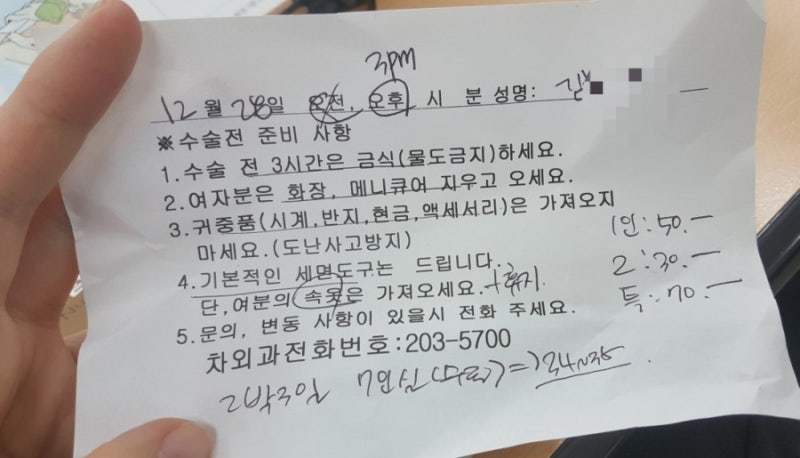 3pm
12월 28일 오전, 오후 시 분 성명: 김
※수술전 준비 사항
1.수술 전 3시간은 금식(물도금지)하세요.
2.여자분은 화장, 메니큐어 지우고 오세요.
3.귀중품(시계,반지,현금,액세서리)은 가져오지
마세요.(도난사고방지)
4.기본적인 세면도구는 드립니다.
단,여분의 속옷은 가져오세요.+휴지.
5.문의, 변동 사항이 있을시 전화 주세요.
차외과전화번호:203-5700
1인:50.—
2:30.—
특:70.—
2박3일 7인실 => 34~35.